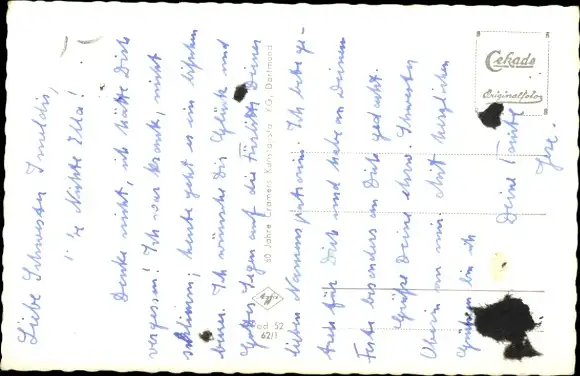 Liebe Schwester Imeldis,
l. Nichte Ella!
Denke nicht, ich hätte Dich
vergessen! Ich war krank, nicht
schlimm; heute geht es ein bißchen
besser. Ich wünsche Dir Glück und
Gottes Segen auf die Fürbitte Deiner
lieben Namenspatronin. Ich bete
für Dich und habe an Deinem
Feste besonders an Dich gedacht.
Grüße Deine ehrw. Schwester
Oberin von mir. Mit herzlichen
Grüßen bin ich
Deine Tante
50 Jahre Cramers Kunstanstalt KG, Dortmund
Agfa
ad 52
62/1
Cekade
Originalfoto